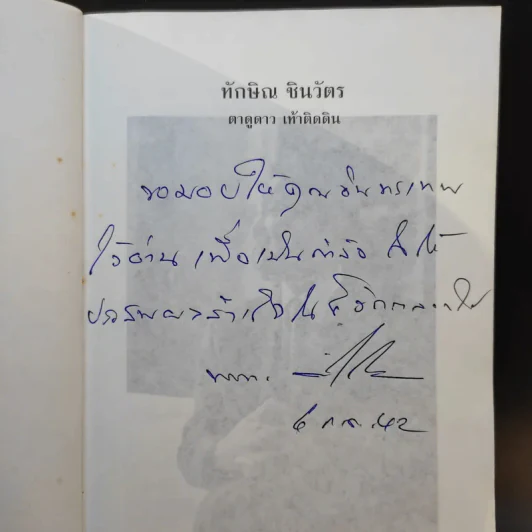 ทักษิณ ชินวัตร
ตาดูดาว เท้าติดดิน
ขอมอบให้คุณอินทรเทพ
ไว้อ่าน เพื่อเป็นกำลังใจให้
ประสบผลสำเร็จใน
6 ก.ค. 42